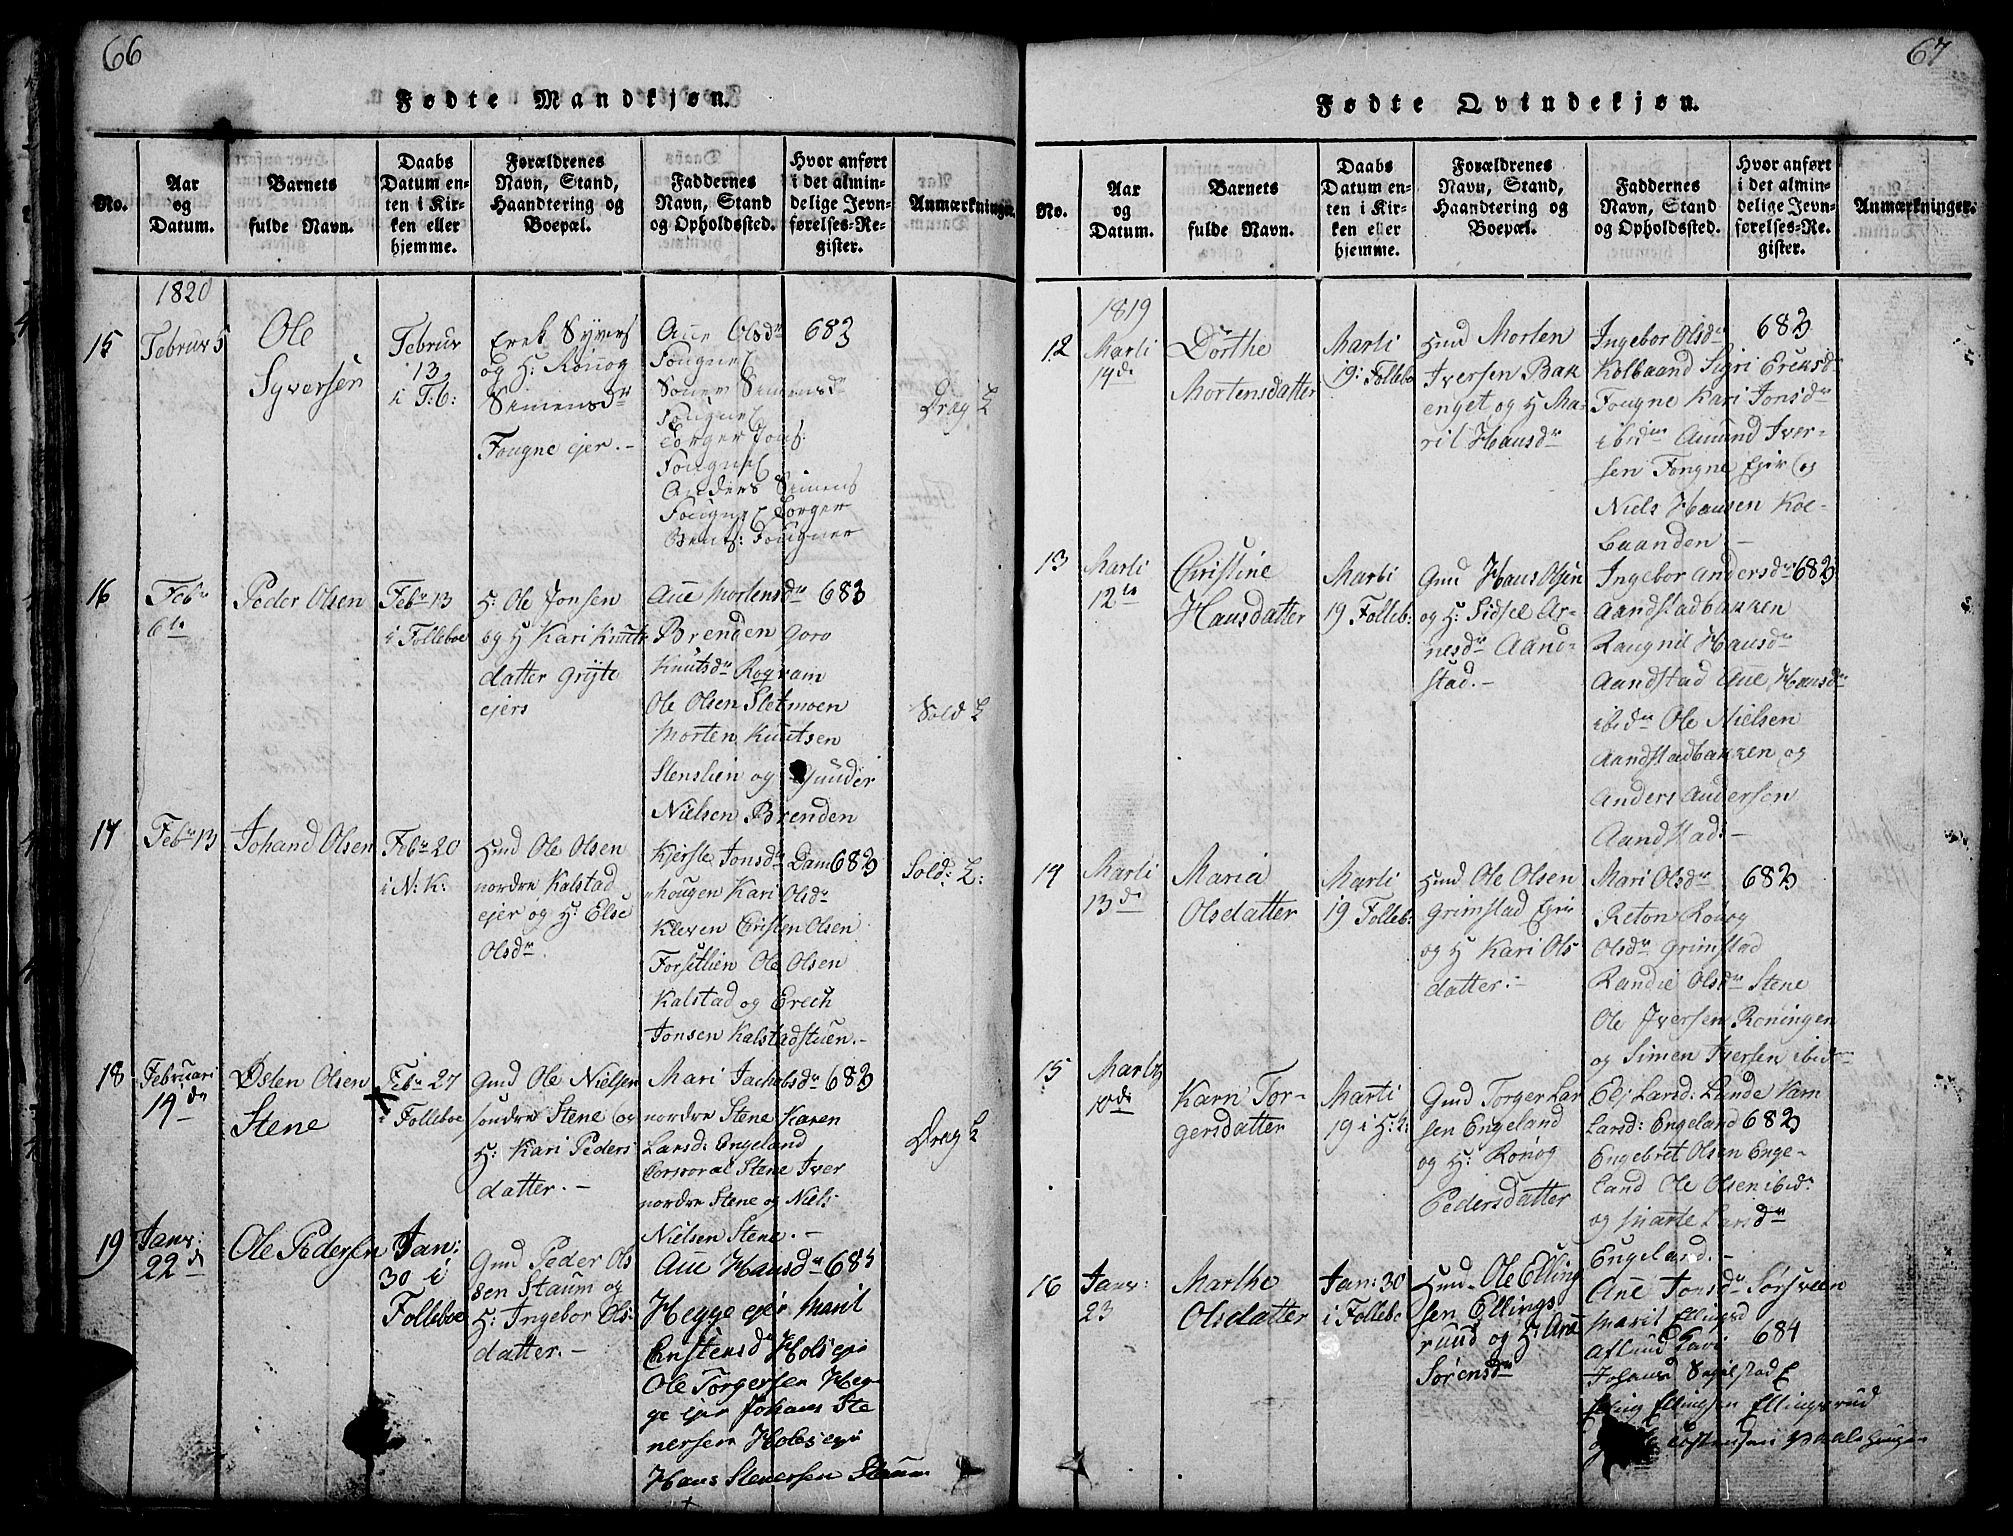 66
Fødte Mandkjøn.
No.
Aar
og
Datum.
Barnets
fulde Navn.
Daabs
Datum en-
ten i Kir-
ken eller
hjemme.
Forældrenes
Navn, Stand,
Haandtering og
Boepæl.
Faddernes
Navn, Stand
og Opholdssted.
Hvor anført
i det almin-
delige Jevn-
førelses-Re-
gister.
Anmærkninger.
1820
15
Februr 5
Ole
Syversen
Februr
13
i F:b:
Erek Syvers
og H: Rönog
Simensdr
Fougne ejer.-
Ane Olsdr
Fougne
Simensdr
Fougne
Torger Jons:
Fougne
Anders Simens
Fougne Torger
Fougner
683
Drag L
16
Febr
6te
Peder Olsen
Febr 13
i Folleboe
H: Ole Jonsen
og H Kari Knuts
datter Gryte
ejers
Ane Mortensdr
Brenden Goro
Knutsdr Rogram
Ole Olsen Sletmoen
Morten Knutsen
Stenslien og Gunder
Nielsen Brenden
683
Sold L
17
Febr 13
Johand Olsen
Febr 20
i N: K:
Hmd Ole Olsen
nordre Kalstad
ejer og H: Else
Olsdr
Kjerste Jonsdr Dam
hougen Kari Olsdr
Kleven Cristen Olsen
Forsetlien Ole Olsen
Kalstad og Erech
Jonsen Kalstadstuen.-
683
Sold: L:
18
Februari
14de
Østen Olsen
Stene
Febr 27
Folleboe
Gmd Ole Nielsen
søndre Stene og
H: Kari Peders
datter.-
Mari Jachobsdr
nordre Stene Karen
Larsd: Engeland
Corporal Stene Iver
nordre Stene og Niels
Nielsen Stene.-
683
Drag L
19
Janr:
22de
Ole Pedersen
Jan:
30 i
Folleboe
Gmd Peder Ols
sen Staum og
H: Ingebor Ols:
datter.-
Ane Hansdr
Hegge ejer Marit
Enstensd Hols eje
Ole Torgersen Heg-
ge ejer Johans Ste
nersen Hols eje
Hans Stenersen Staum
685
67
Fødte Qvindekjøn.
No.
Aar
og
Datum.
Barnets
fulde Navn.
Daabs
Datum en-
ten i Kir-
ken eller
hjemme.
Forældrenes
Navn, Stand,
Haandtering og
Boepæl.
Faddernes
Navn, Stand
og Opholdssted.
Hvor anført
i det almin-
delige Jevn-
førelses-Re-
gister.
Anmærkninger.
1819
12
Marti
14de
Dorthe
Mortensdatter
Marti
19: Follebo
Hmd Morten
Iversen Bak
enget og H Ma-
ril Hansdr
Ingebor Olsdr
Kolbaand Sigri Ericksd
Fougne Kari Jonsdr
ibidm Amund Iver-
sen Fougne Ejer og
Niels Hansen Kol-
baanden.-
683
13
Marti
12te
Christine
Hansdatter
Marti
19 Folleb:
Gmd Hans Olsen
og H: Sidsel Ar-
nesdr Aand-
stad.-
Ingebor Andersdr
Aandstadbakken
Rangnil Hansdr
Aandstad Ane Hansdr
ibidm Ole Nielsen
Aandstadbakken og
Anders Andersen
Aandstad.-
683
14
Marti
13de
Maria
Olsdatter
Marti
19 Folleb:
Hmd Ole Olsen
Grimstad Ejer
og H Kari Ols
datter.-
Mari Olsdr
Reton Ronog
Olsdr Grimstad
Randie Olsdr Stene
Ole Iversen Roningen
og Simen Iversen ibidm
683
15
Marti
10de
Karn Tor-
gersdatter
Marti
19 i H: K:
Gmd Torger Lar
sen Engeland
og H: Ronog
Pedersdatter
Elj Larsd: Lunde Karn
Larsd: Engeland
Engebret Olsen Enge-
land Ole Olsen ibid:
og Marte Larsdr
Engeland.-
683
16
Janr:
23
Marthe
Olsdatter
Jan: 30
i Follebo
Hmd Ole Elling
sen Ellings
ruud og H: Ane
Sørensdr
Ane Jonsdr Sørsveen
Marit Ellingsd
Aslund
Johans
Elling Ellingsen Ellingsrud
684